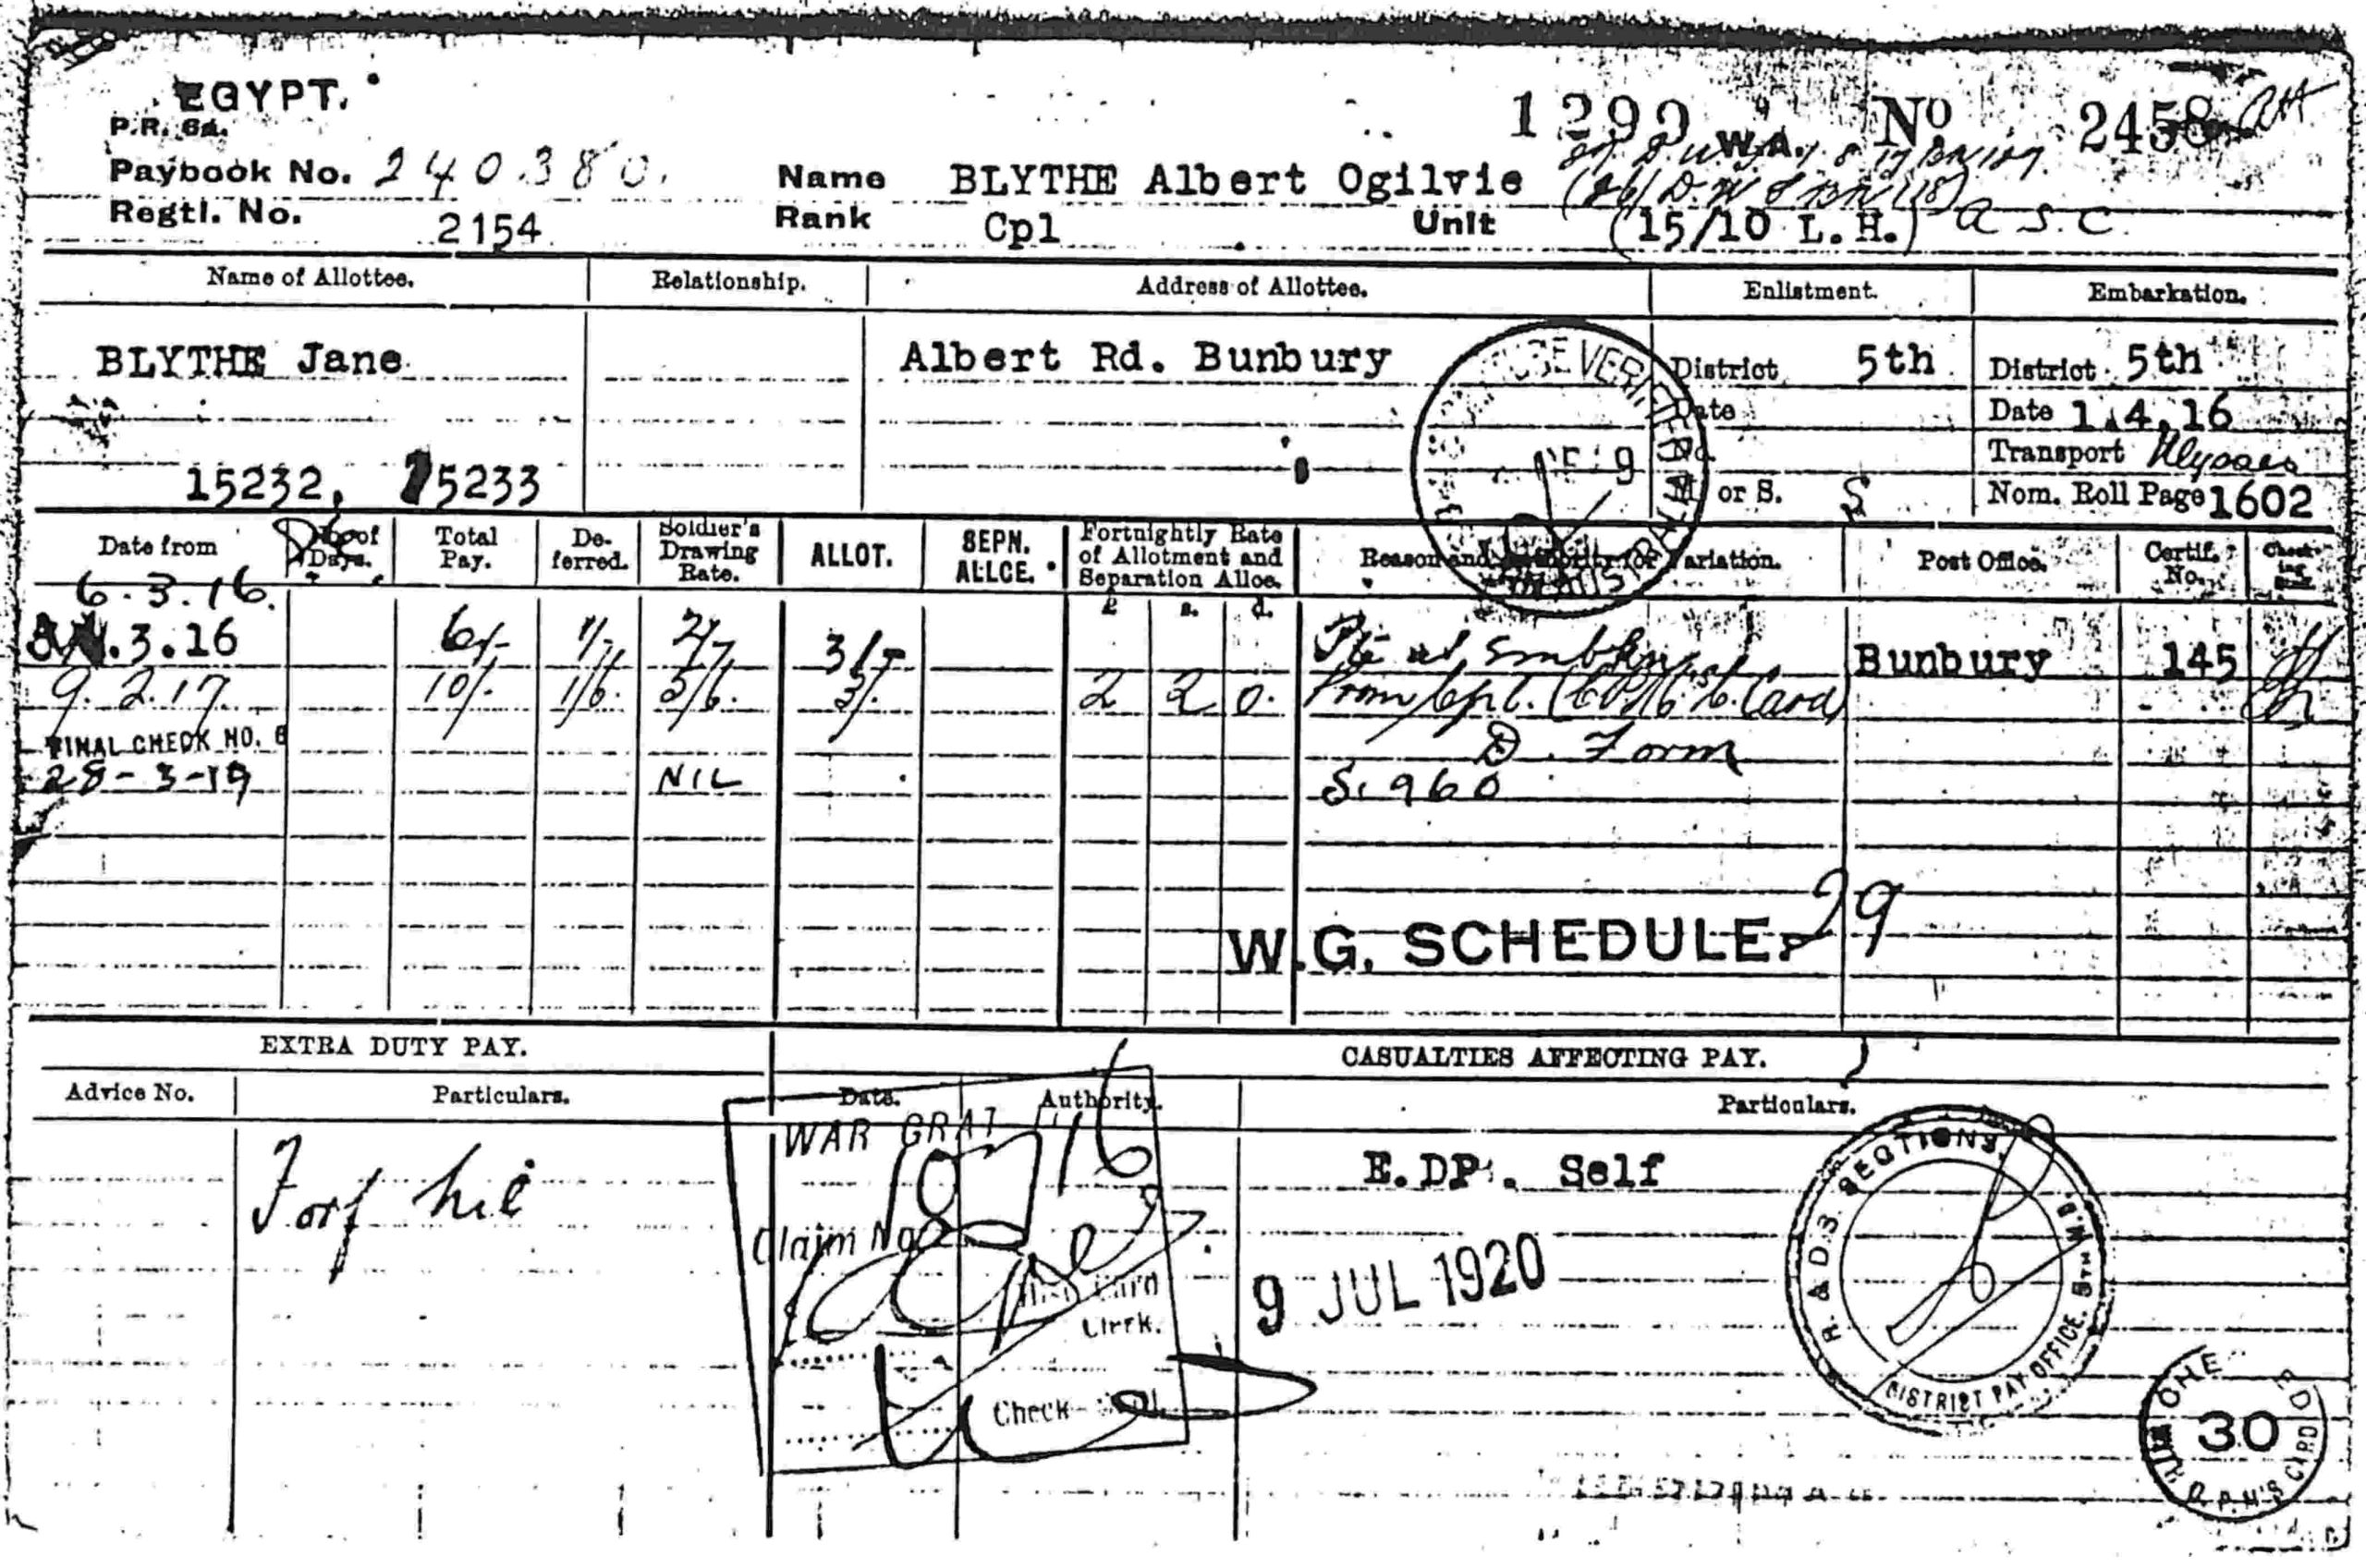 EGYPT.
P.R. 64.
1299 W.A. No 2458
Paybook No. 240380. Name BLYTHE Albert Ogilvie
Regtl. No. 2154 Rank Cpl Unit (15/10 L.H.) A S.C.
Name of Allottee. Relationship. Address of Allottee. Enlistment. Embarkation.
BLYTHE Jane Albert Rd. Bunbury District 5th District 5th
Date Date 1.4.16
No. Transport Ulysses
15232, 15233 M or S. S Nom. Roll Page 1602
Date from No. of Days. Total Pay. De-ferred. Soldier's Drawing Rate. ALLOT. SEPN. ALLCE. Fortnightly Rate of Allotment and Separation Alloe. Reason and Authority for Variation. Post Office. Certif. No. Check-ing
£ s. d.
6.3.16.
.3.16 6/- 1/- 2/- 3/- Pte at Embkn Bunbury 145
9.2.17. 10/. 1/6. 5/6. 3/. 2 2 0. Prom Cpl. Card)
FINAL CHECK NO. 6 D. Form
28-3-19 NIL S. 960
W.G. SCHEDULE. 29
EXTRA DUTY PAY. CASUALTIES AFFECTING PAY.
Advice No. Particulars. Date. Authority. Particulars.
WAR GRAT
Forf nil E.DP. Self
Claim No
9 JUL 1920
Card
Clerk.
Check
R. & D.3. SECTIONS. DISTRICT PAY OFFICE. 5TH M.D.
30